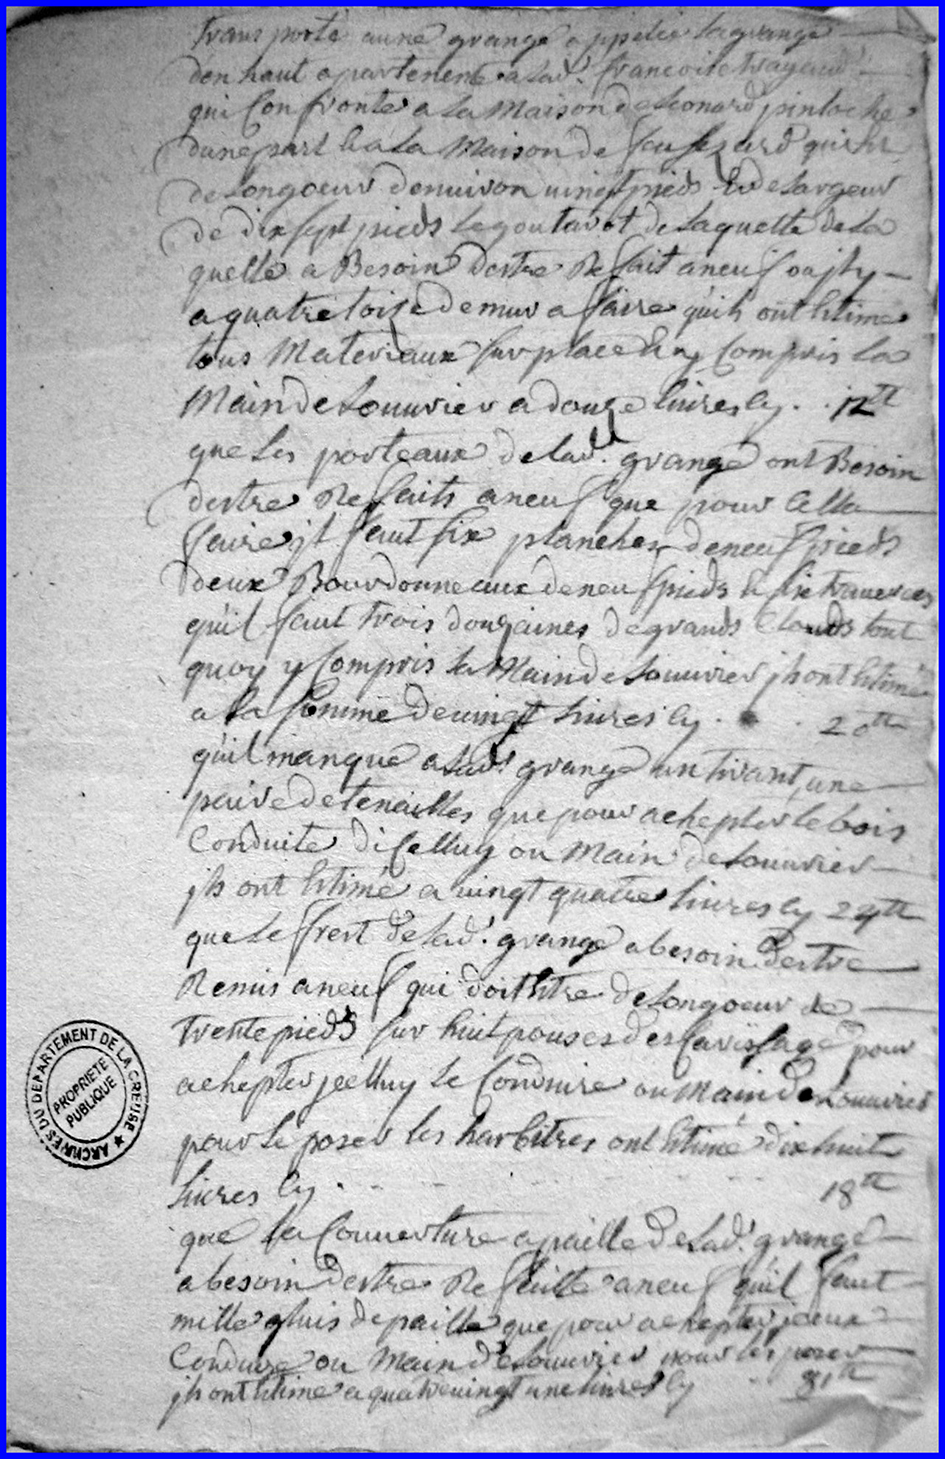 transporté a une grange appellée la grange
den haut apartenente a lad.^e francoise trayaud
qui Confronte a la Maison de Leonard pinloche
dune part & a la Maison de qui hr
de Longoeur denuiron uingt pieds & de Largeur
de dix sept pieds Legoutarot de Laquelle de La
quelle a Besoin destre Refait aneuf jl y
a quatre toise de mur a faire quils ont Estimé
tous Materiaux sur place & y Compris la
Main de Louurier a douze liures Cy . . 12^tt
que Les porteaux de lad.^e grange ont Besoin
destre Refaits aneuf que pour Cella
faire jl faut six planches de neuf pieds
deux Bourdonneaux de neuf pieds & six trauerces
quil faut trois douzaines de grands Clouds tout
quoy y Compris la Main de Louurier jls ont Estimé
a la somme de uingt liures Cy . . . 20^tt
quil manque a lad.^e grange un tirant, une
paire de tenailles que pour achepter le bois
Conduite diCelluy ou Main de Louurier
jls ont Estimé a uingt quatre liures Cy 24^tt
que Le frest de lad.^e grange a besoin destre
Remis aneuf qui doit Estre de Longoeur de
trente pieds sur huit pouses descarissage pour
achepter jcelluy le Conduire ou Main de Louurier
pour Le poser les harbitres ont Estimé dix huit
liures Cy . . . . . 18^tt
que la Couuerture a paille de Lad.^e grange
a besoin destre Refaitte aneuf quil faut
mille gluis de paille que pour achepter jceux
Conduire ou Main de Louurier pour les poser
jls ont Estimé a quatreuingt une liures Cy . 81^tt
ARCHIVES DU DÉPARTEMENT DE LA CREUSE ★
PROPRIÉTÉ
PUBLIQUE